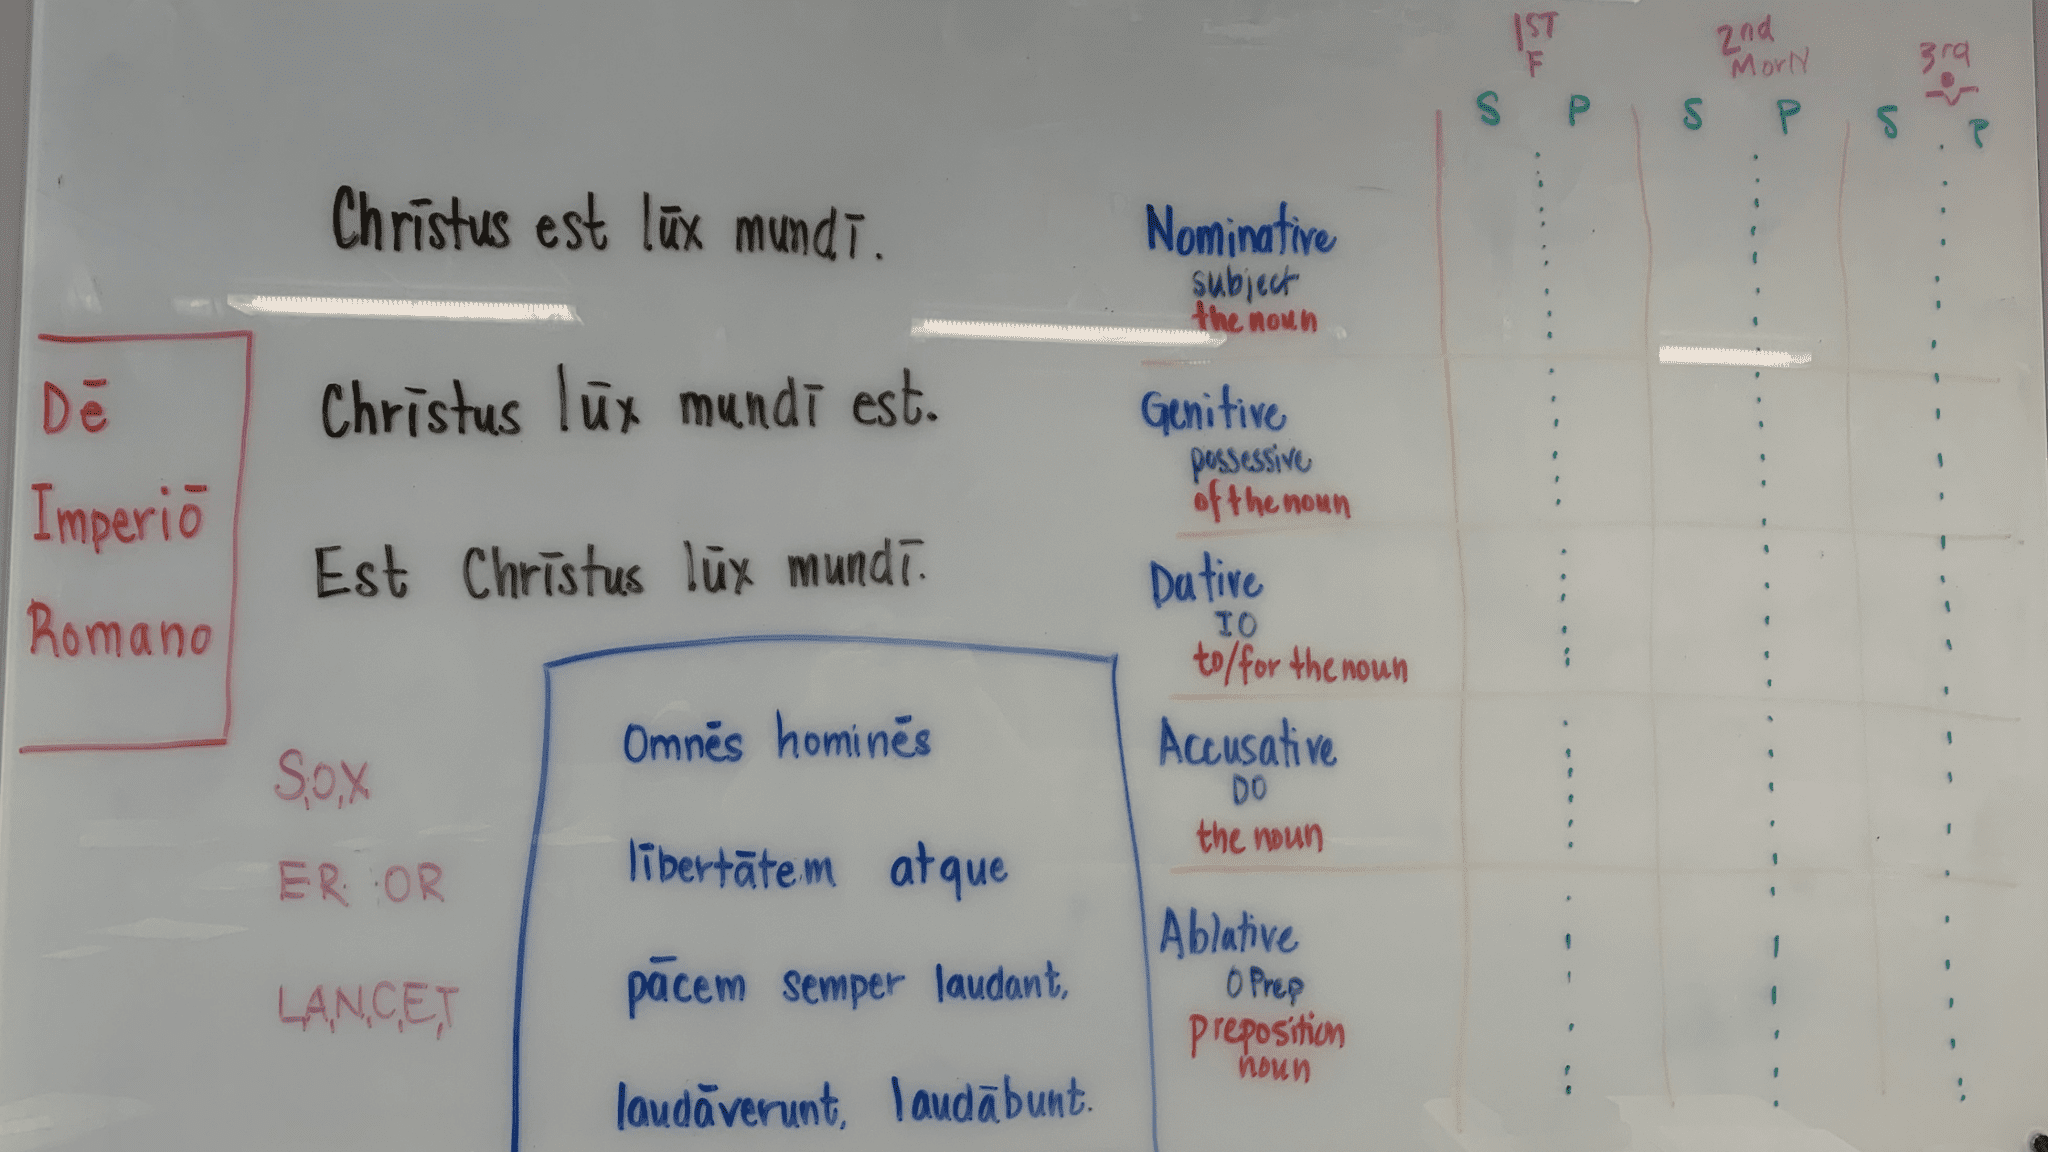 Dē
Imperiō
Romano
Chrīstus est lūx mundī.
Chrīstus lūx mundī est.
Est Chrīstus lūx mundī.
S,O,X
ER OR
L,A,N,C,E,T
Omnēs hominēs
lībertātem atque
pācem semper laudant,
laudāverunt, laudābunt.
1ST 2nd 3rd
F M or N
S P S P S P
Nominative
subject
the noun
Genitive
possessive
of the noun
Dative
IO
to/for the noun
Accusative
DO
the noun
Ablative
O Prep
preposition
noun